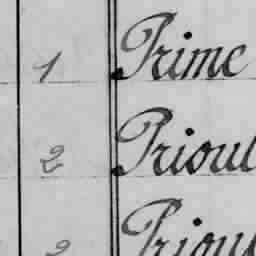 1 Prime
2 Prioul
2 Prioul